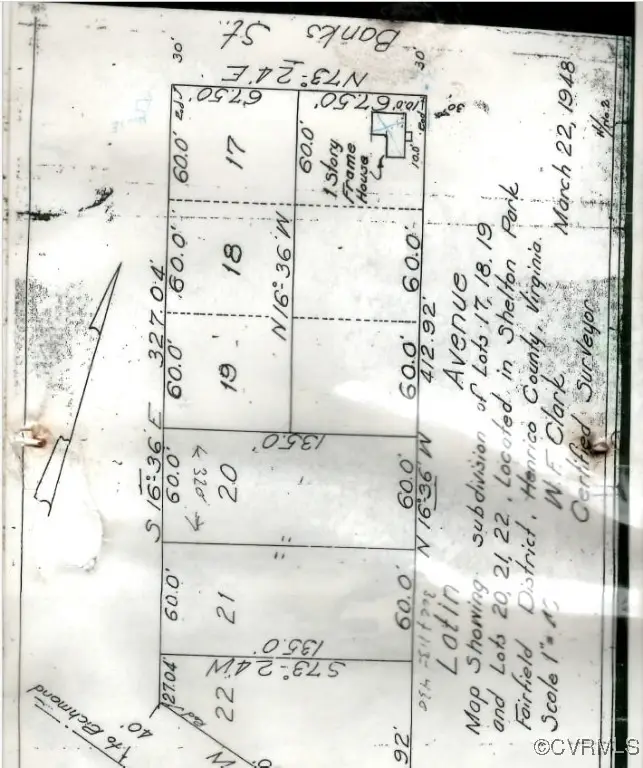 Banks
St.
30'
30'
N73°-24'E
67.50'
67.50'
10.0'
Rod
Rod
30'
10.0'
60.0'
17
60.0'
1 Story
Frame
House
60.0'
18
N16°-36'W
60.0'
60.0'
19
60.0'
S 16°-36' E 327.04'
412.92'
N 16°-36' W
135.0'
60.0'
20
60.0'
320
"
"
60.0'
21
60.0'
135.0'
S73°-24'W
27.04'
22
Rod
92'
to Richmond
40'
W
Latin Avenue
Map Showing subdivision of Lots 17, 18, 19
and Lots 20, 21, 22, Located in Shelton Park
Fairfield District, Henrico County, Virginia.
Scale 1"=
W.F. Clark March 22, 1948
Certified Surveyor
©CVRMLS